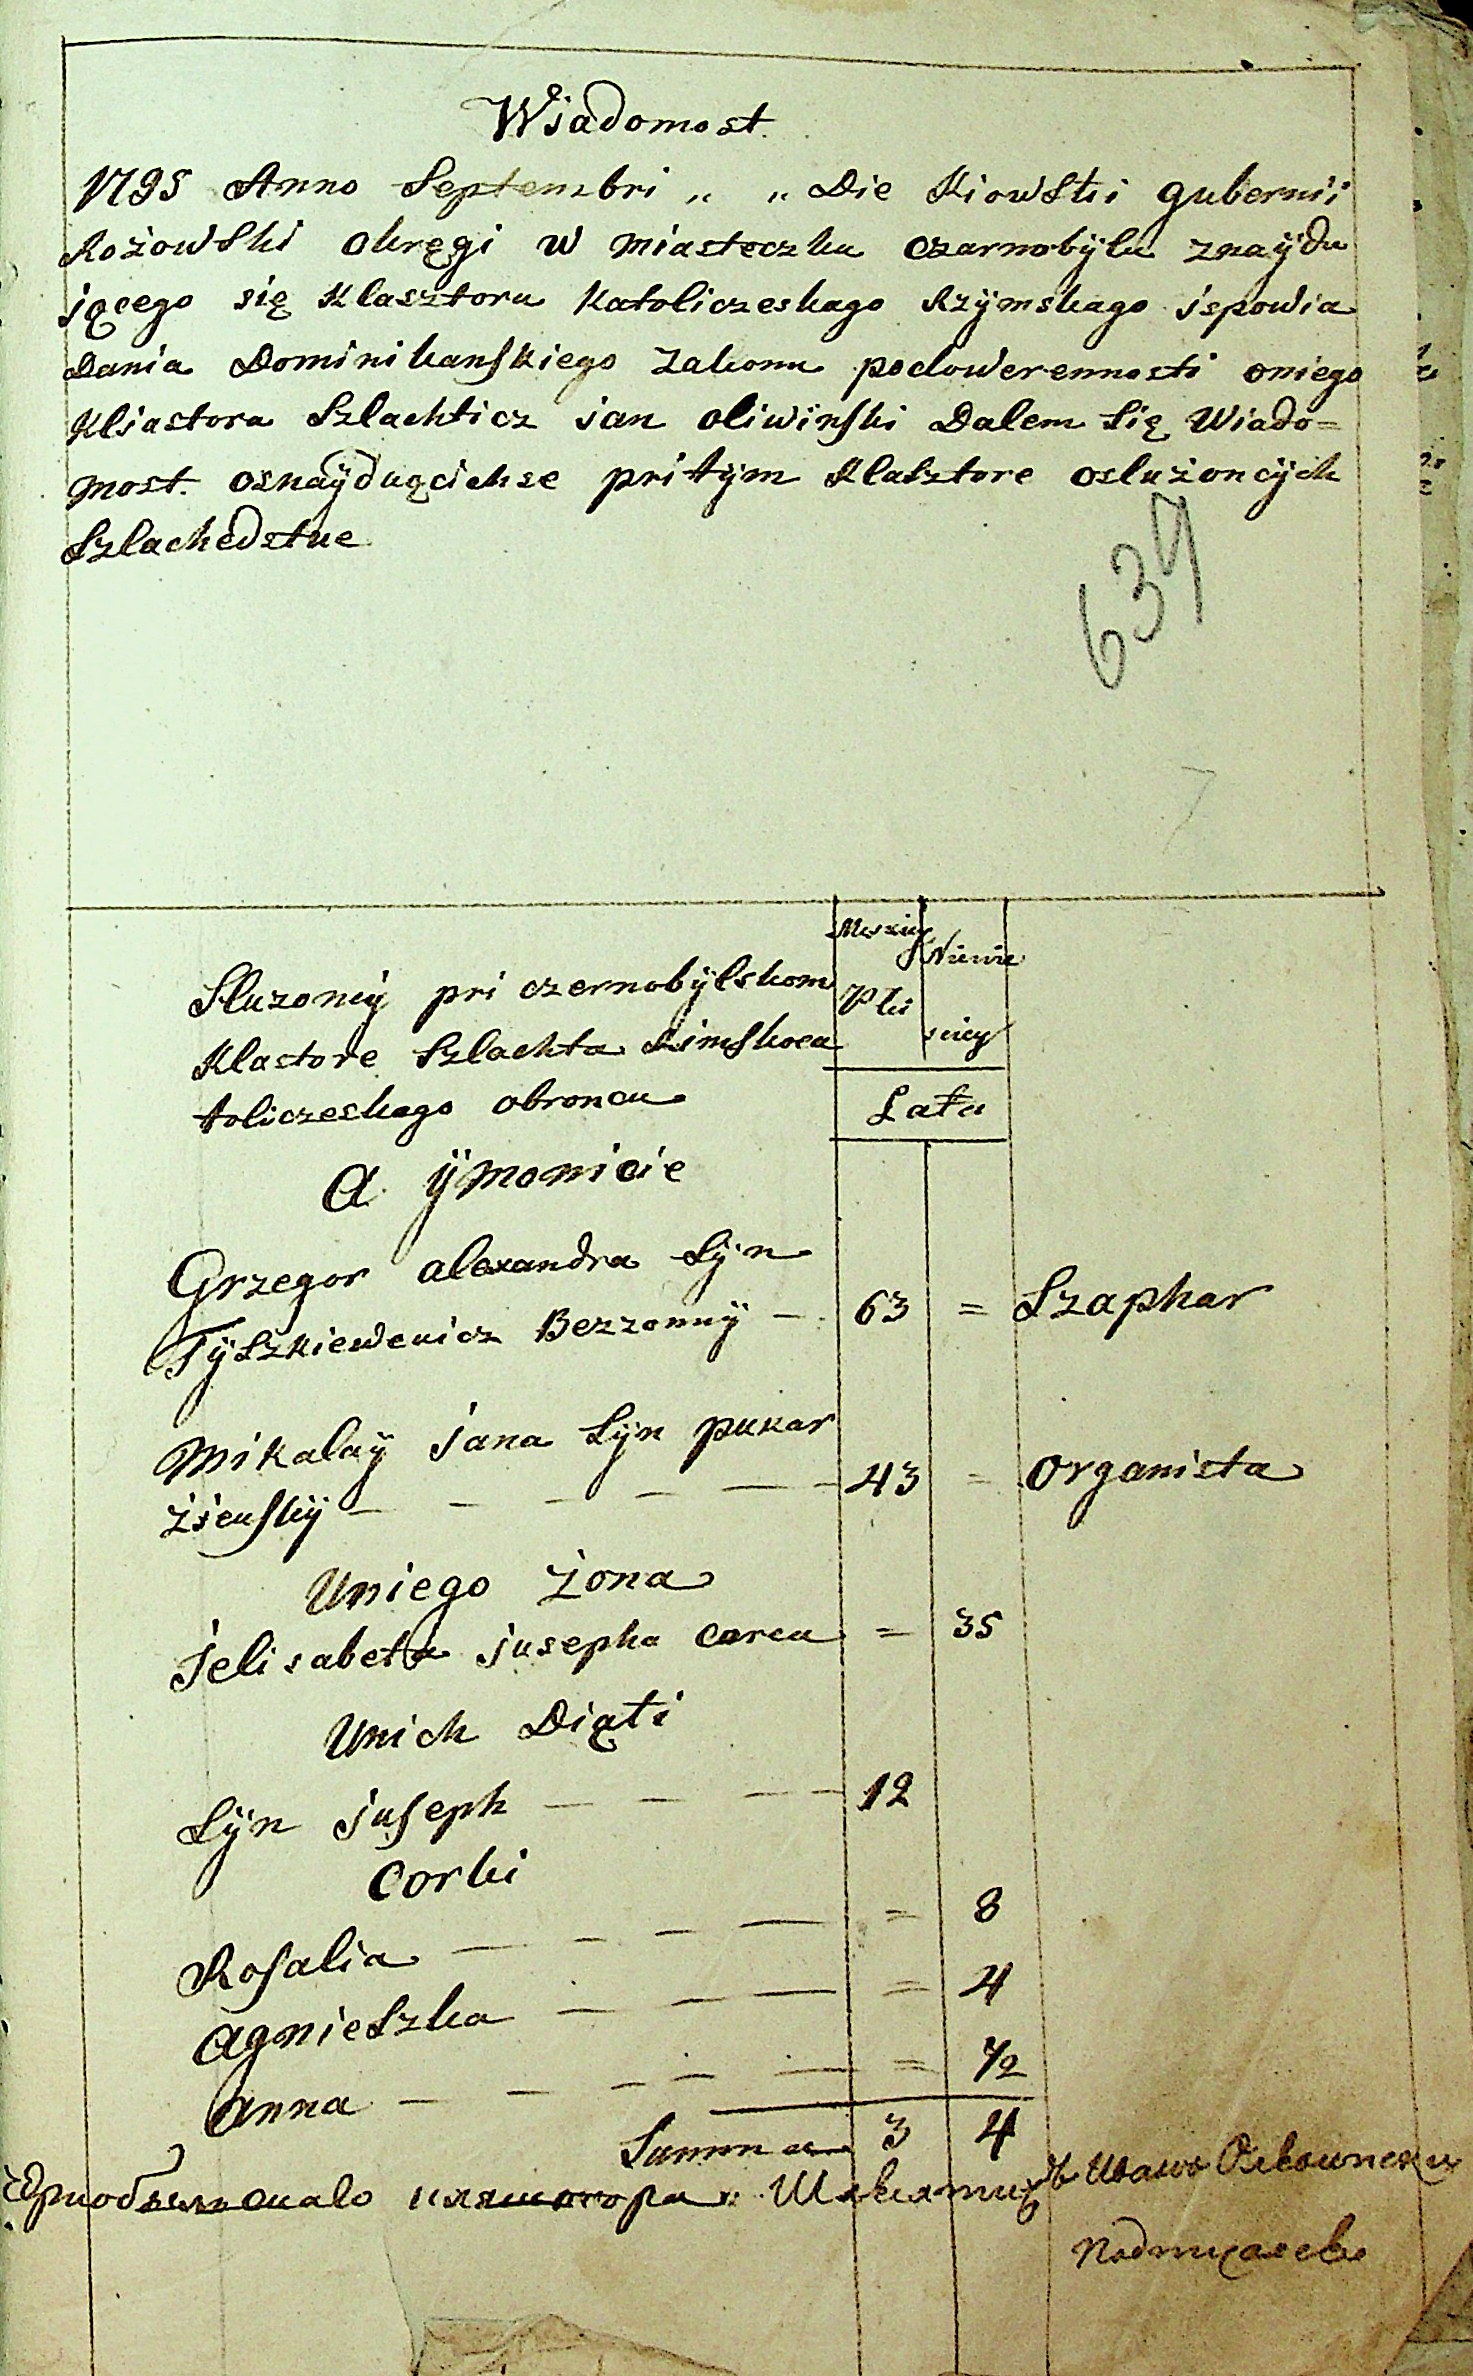 Wiadomost
1795 Anno Septembri „ „ Die Kiowski gubernii
Rożowski okręgi w miasteczku czarnobylu znaÿdu
jącego się Klasztoru Katoliczeskago Rzÿmskago ispowia
dania Dominikanskiego Zakonu podowerennosti oniego
Kliastora Szlachticz jan oliwinski Dalem się Wiado=
most. osnaÿduącichse pritÿm Klasztore osluzoncÿch
Szlachedstue
637
Sluzoncÿ pri czernobÿlskom
Klastore Szlachta Rimskoca
toliczeskago obroncu
Męskiey
Płci
Niewie
sciey
Lata
A ÿmonicie
Grzegor alexandra Sÿn
Tÿszkiewenicz Bezzonnÿ — 63 = Szaphar
Mikalaÿ jana Sÿn pukar
żienskÿ — — — — — 43 = organista
Uniego żona
jelisabeta jusepha corca = 35
Unich Diąti
Sÿn juseph — — — — 12
Corki
Rosalia — — — — = 8
agnieszka — — — = 4
anna — — — — — = ½
Summa 3 4
Чернобылскаго кляштора Шляхтичъ Иванъ Оливински
подписалсь